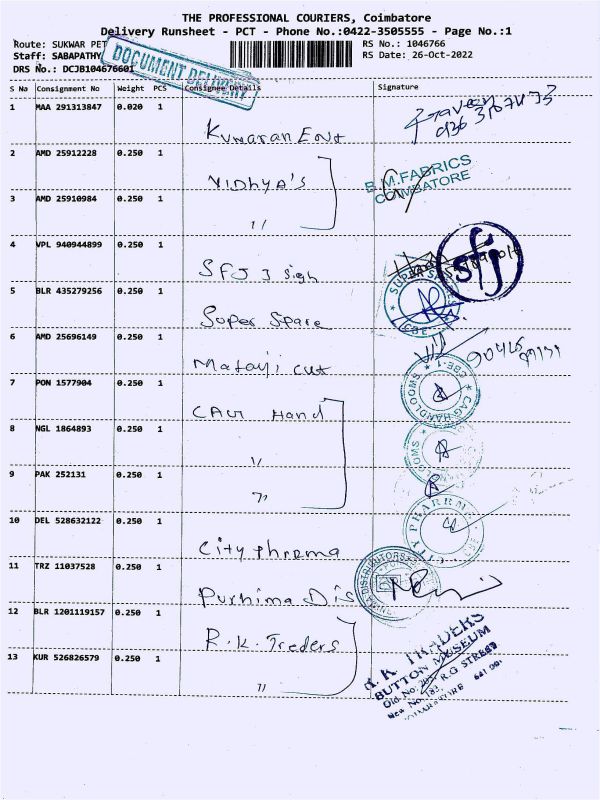 THE PROFESSIONAL COURIERS, Coimbatore
Delivery Runsheet - PCT - Phone No.:0422-3505555 - Page No.:1
Route: SUKWAR PET
RS No.: 1046766
Staff: SABAPATHY
RS Date: 26-Oct-2022
DRS No.: DCJB104676601
DOCUMENT DELIVERY
S No Consignment No Weight PCS Consignee Details Signature
1 MAA 291313847 0.020 1 Kumaran Ent
2 AMD 25912228 0.250 1 Vidhya's
B.M.FABRICS
COIMBATORE
3 AMD 25910984 0.250 1 "
4 VPL 940944899 0.250 1 SFJ 3 Sigh
sfj
5 BLR 435279256 0.250 1 Super Spare
CBE
6 AMD 25696149 0.250 1 Mataji cut
7 PON 1577904 0.250 1 CAG Hand
CAG HANDLOOMS * CBE-1 *
8 NGL 1864893 0.250 1 "
9 PAK 252131 0.250 1 "
10 DEL 528632122 0.250 1 City Phrema
CITY PHARMA
11 TRZ 11037528 0.250 1 Purnima Dis
DISTRIBUTORS
12 BLR 1201119157 0.250 1 R.K. Treders
13 KUR 526826579 0.250 1 "
R.K TRADERS
BUTTON MUSEUM
R.G STREET